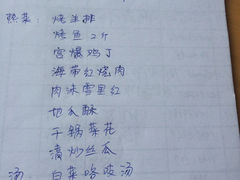 熟菜: 烤羊排
烤鱼2个
宫爆鸡丁
海带红烧肉
肉沫雪里红
地瓜酥
干锅菜花
清炒丝瓜
汤: 白菜咯吱汤